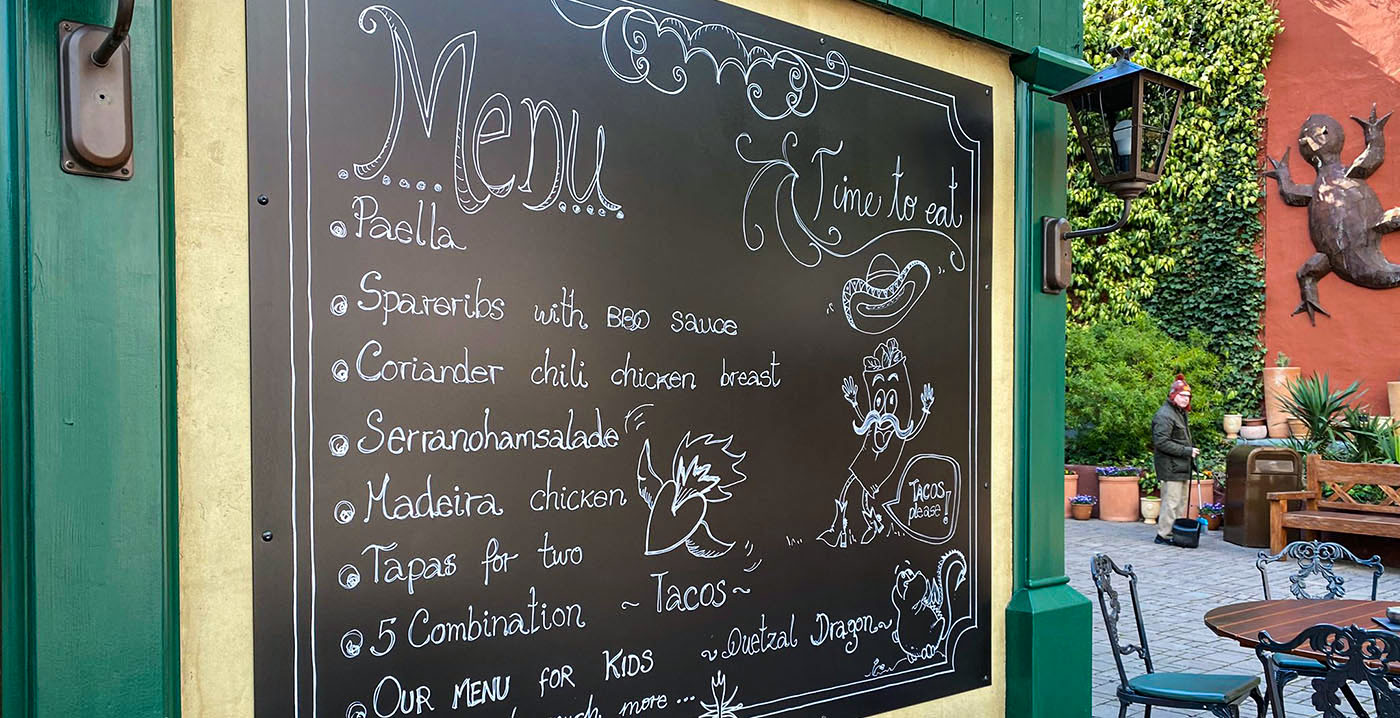 Menu
Time to eat
Paella
Spareribs with BBQ sauce
Coriander chili chicken breast
Serranohamsalade
Madeira chicken
TACOS
please!
Tapas for two
5 Combination ~Tacos~
~Quetzal Dragon~
OUR MENU FOR KIDS
much more ...